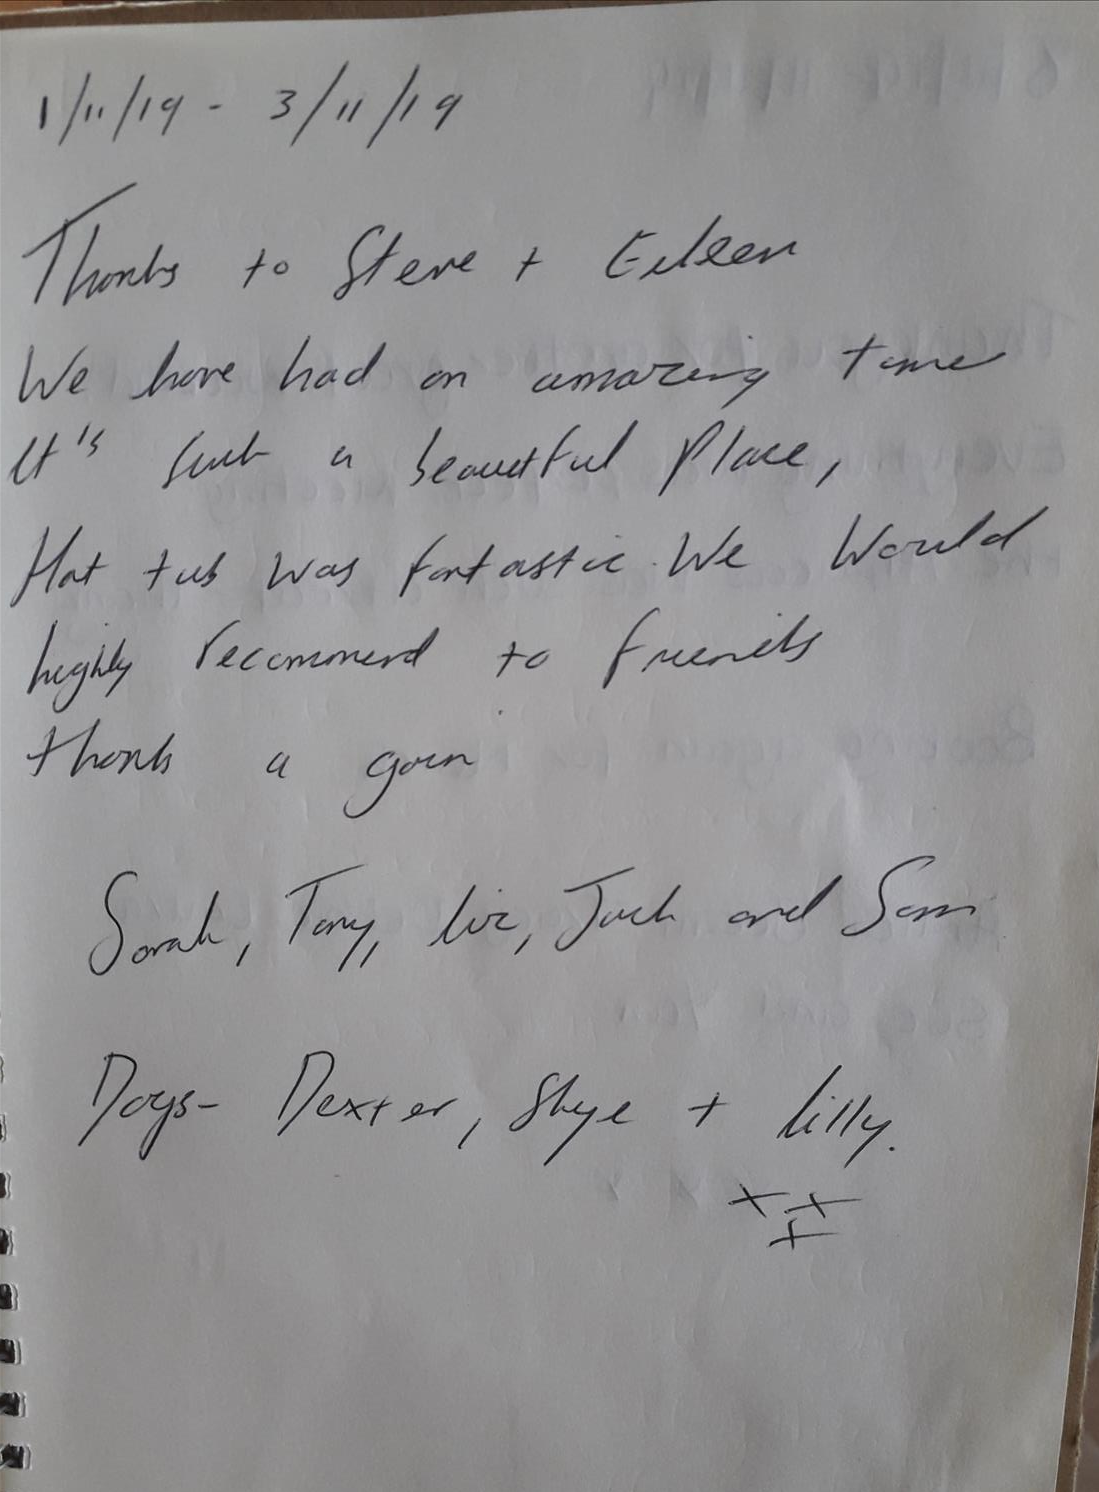 1/11/19 - 3/11/19
Thanks to Steve + Eileen
We have had an amazing time
It's such a beautiful place,
Hot tub was fantastic. We would
highly recommend to friends
thanks a gain
Sarah, Tony, Liz, Jack and Sam
Dogs- Dexter, Skye + Lilly.
x x
x